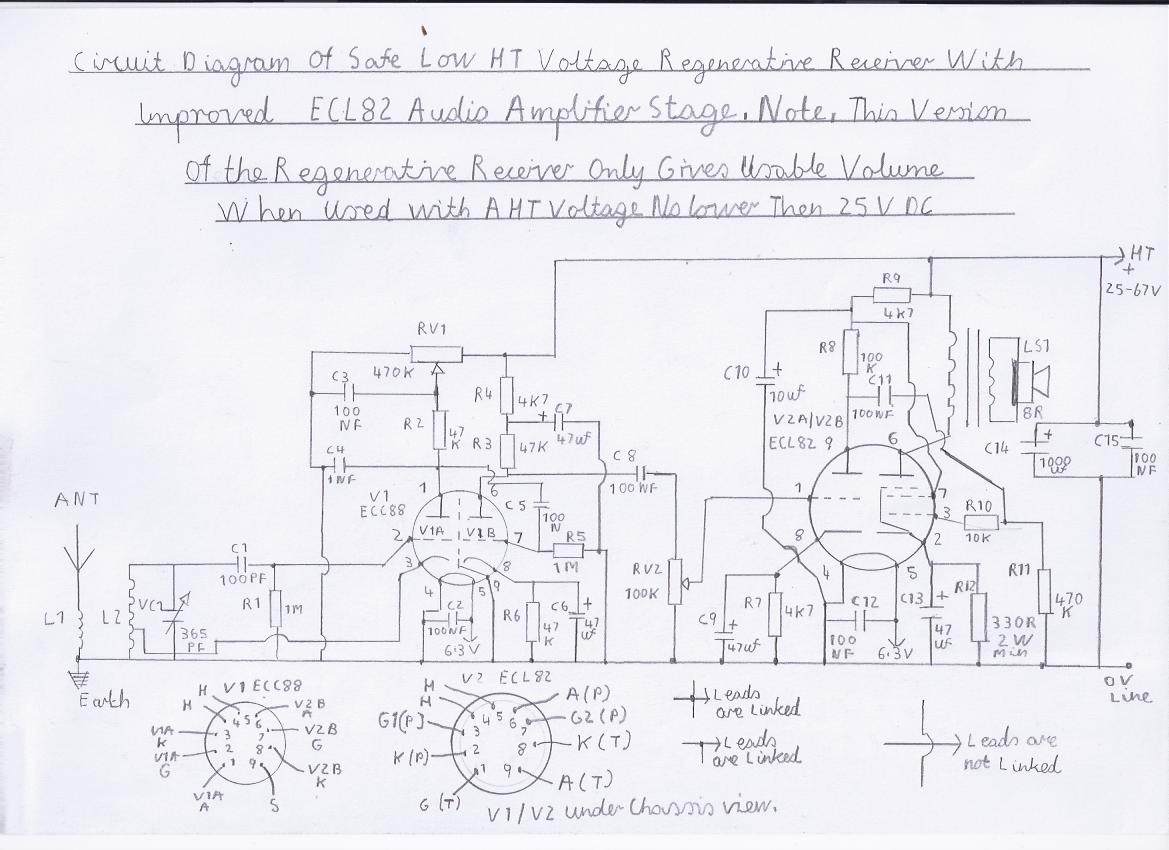 Circuit Diagram Of Safe Low HT Voltage Regenerative Receiver With
Improved ECL82 Audio Amplifier Stage. Note, This Version
Of the Regenerative Receiver Only Gives Usable Volume
When Used with A HT Voltage No lower Then 25 V DC
HT
+
25-67V
R9
4K7
RV1
470K
C3
100
NF
R2
47
K
R4
4K7
+
C7
47uf
R3
47K
C4
1NF
C8
100NF
C10
+
10uf
R8
100
K
C11
100NF
V2A/V2B
ECL82
9
6
LS1
8R
C14
+
1000
uf
C15
100
NF
V1
ECC88
1
6
V1A
V1B
2
7
3
8
4
5
9
C5
100
N
R5
1M
ANT
L1
L2
VC1
365
PF
C1
100PF
R1
1M
C2
100NF
6.3V
R6
47
K
C6
+
47
uf
RV2
100K
C9
+
47uf
R7
4K7
1
8
4
5
7
3
2
R10
10K
C12
100
NF
6.3V
C13
+
47
uf
R12
330R
2W
Min
R11
470
K
Earth
0V
Line
V1 ECC88
H
H
V1A
K
V1A
G
V1A
A
V2B
A
V2B
G
V2B
K
S
1
2
3
4
5
6
7
8
9
V2 ECL82
H
H
G1(P)
K(P)
G(T)
A(P)
G2(P)
K(T)
A(T)
1
2
3
4
5
6
7
8
9
V1/V2 under Chassis view.
Leads
are Linked
Leads
are Linked
Leads are
not Linked